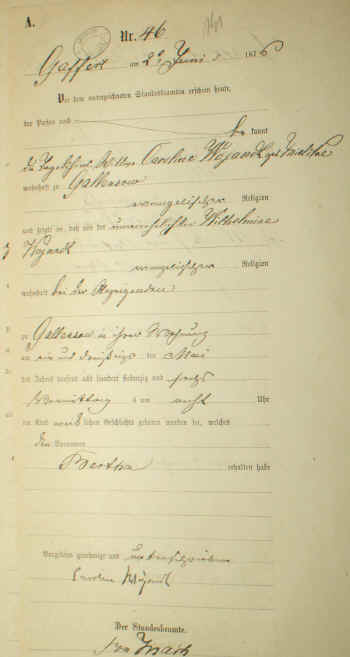 A.
Nr. 46
Gaffert am 2. Juni 1876
Vor dem unterzeichneten Standesbeamten erschien heute,
der Person nach
be kannt
die Tagelöhner Wittwe Caroline Wojandt geb.
wohnhaft zu Gallensow
evangelischer Religion
und zeigte an, daß von der unverehelichten Wilhelmine
Wojandt
evangelischer Religion
wohnhaft bei der Anzeigenden
zu Gallensow in ihrer Wohnung
am ein und dreißigsten Mai
des Jahres tausend acht hundert siebenzig und sechs
Vormittag s um acht Uhr
ein Kind weib lichen Geschlechts geboren worden sei, welches
den Vornamen
Bertha
erhalten habe
Vorgelesen, genehmigt und unterschrieben
Caroline Wojandt
Der Standesbeamte.